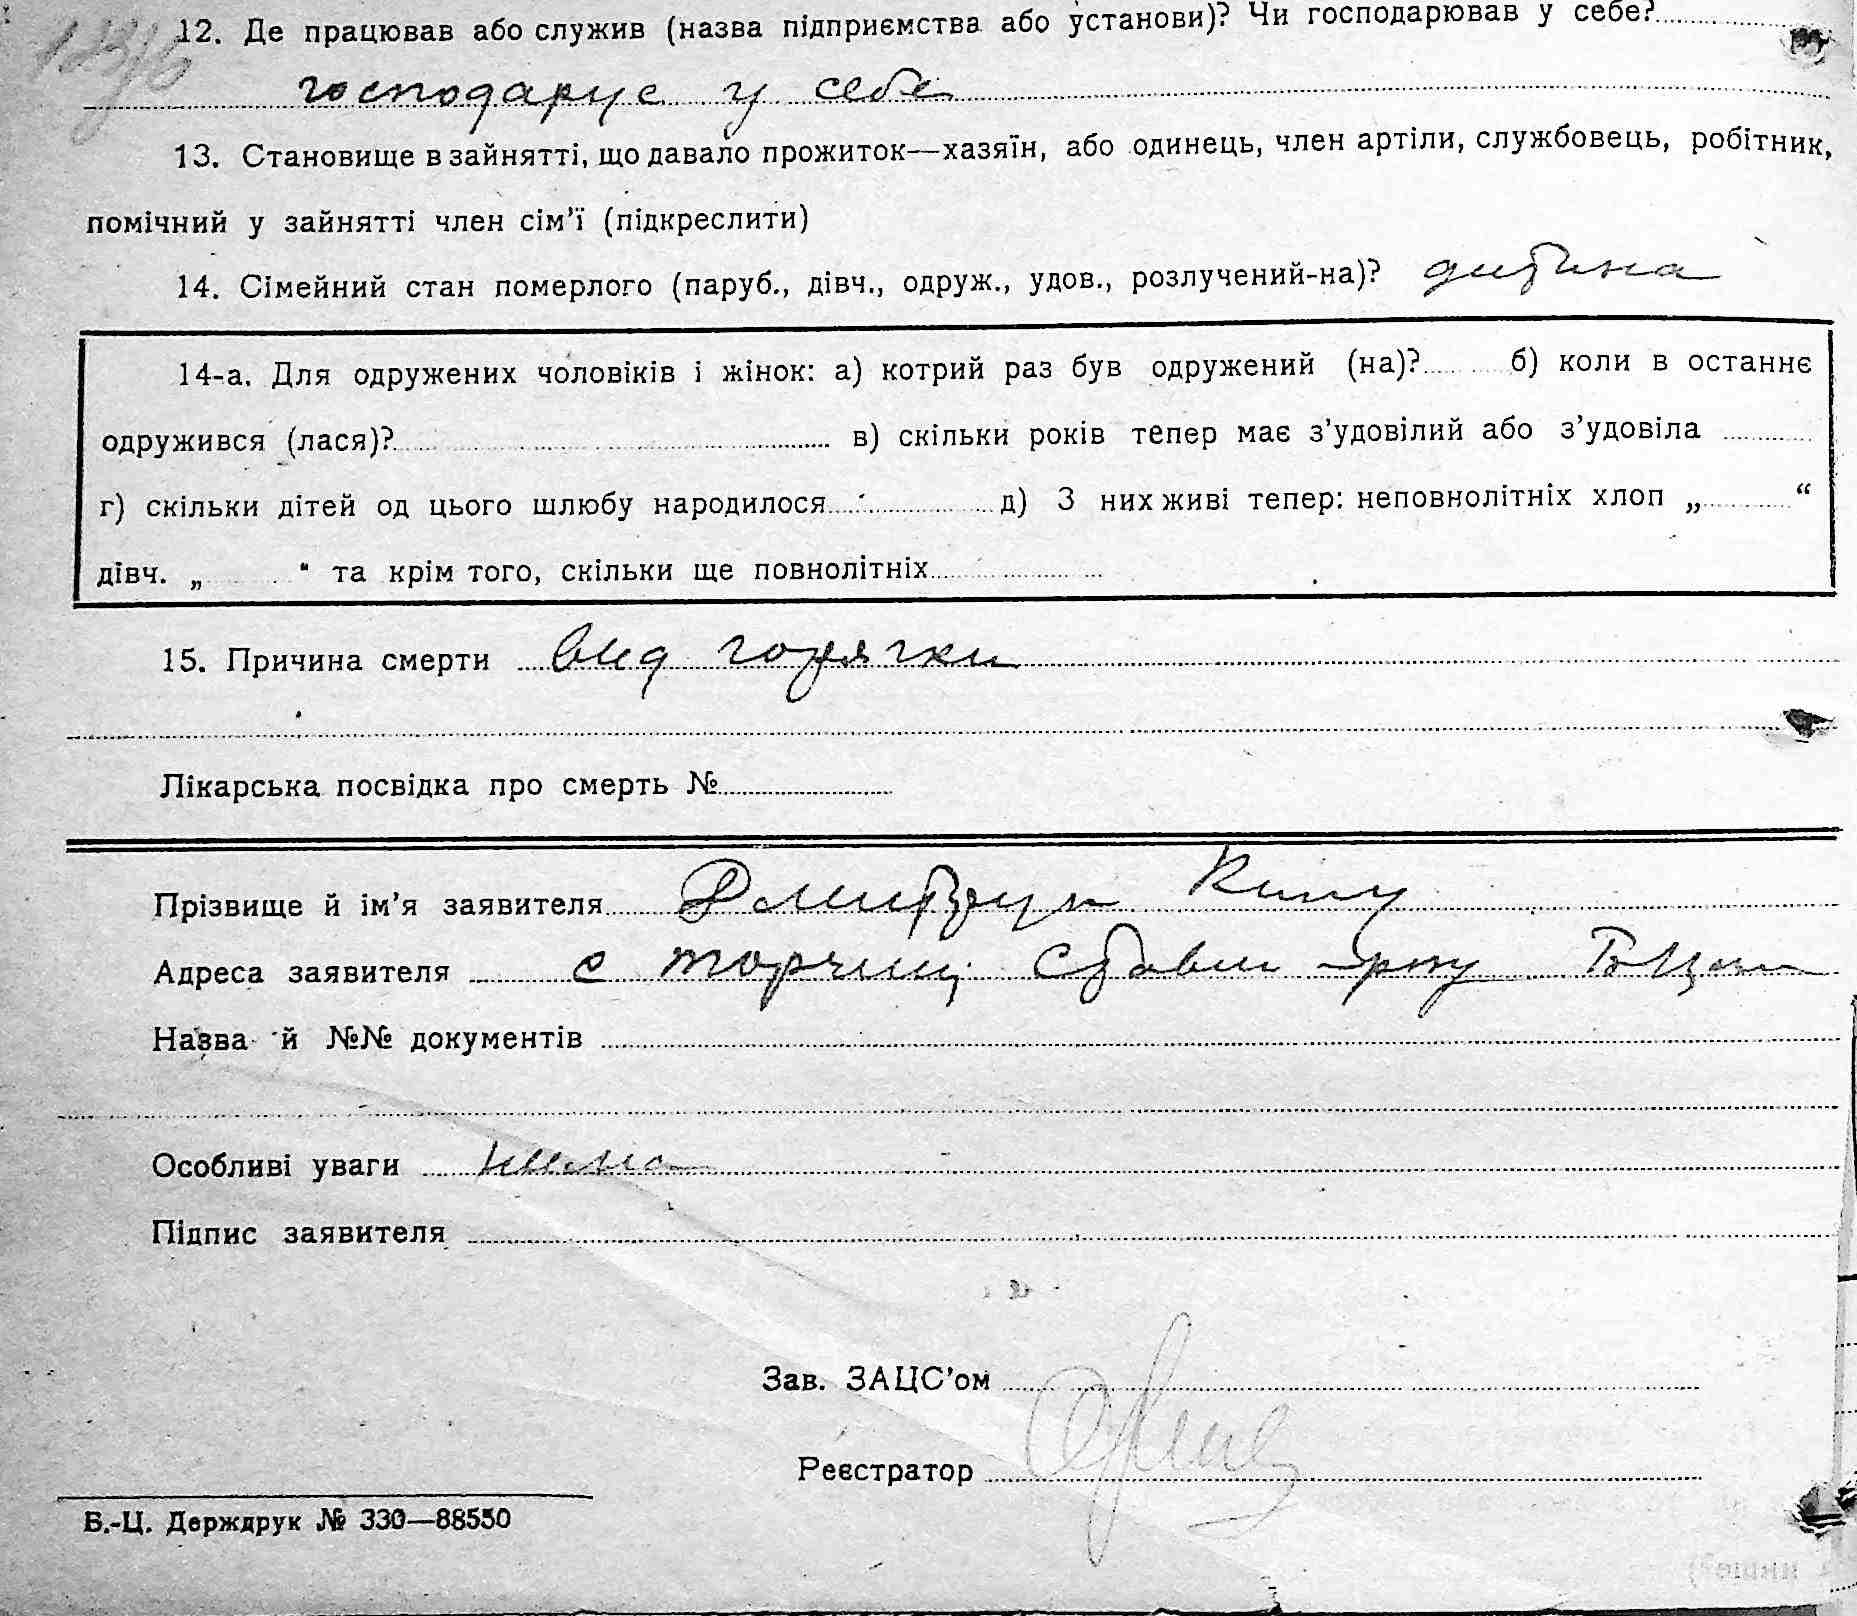 12. Де працював або служив (назва підприємства або установи)? Чи господарював у себе?
господарує у себе
13. Становище в зайнятті, що давало прожиток—хазяїн, або одинець, член артіли, службовець, робітник,
помічний у зайнятті член сім’ї (підкреслити)
14. Сімейний стан померлого (паруб., дівч., одруж., удов., розлучений-на)? дитина
14-а. Для одружених чоловіків і жінок: а) котрий раз був одружений (на)? б) коли в останнє
одружився (лася)? в) скільки років тепер має з’удовілий або з’удовіла
г) скільки дітей од цього шлюбу народилося д) З них живі тепер: неповнолітніх хлоп „ “
дівч. „ “ та крім того, скільки ще повнолітніх
15. Причина смерти вид горячки
Лікарська посвідка про смерть №
Прізвище й ім’я заявителя Дмитрук
Адреса заявителя с Торчиці Ставищ р-ну Б Церк
Назва й №№ документів
Особливі уваги нема
Підпис заявителя
Зав. ЗАЦС’ом
Реєстратор
Б.-Ц. Держдрук № 330—88550